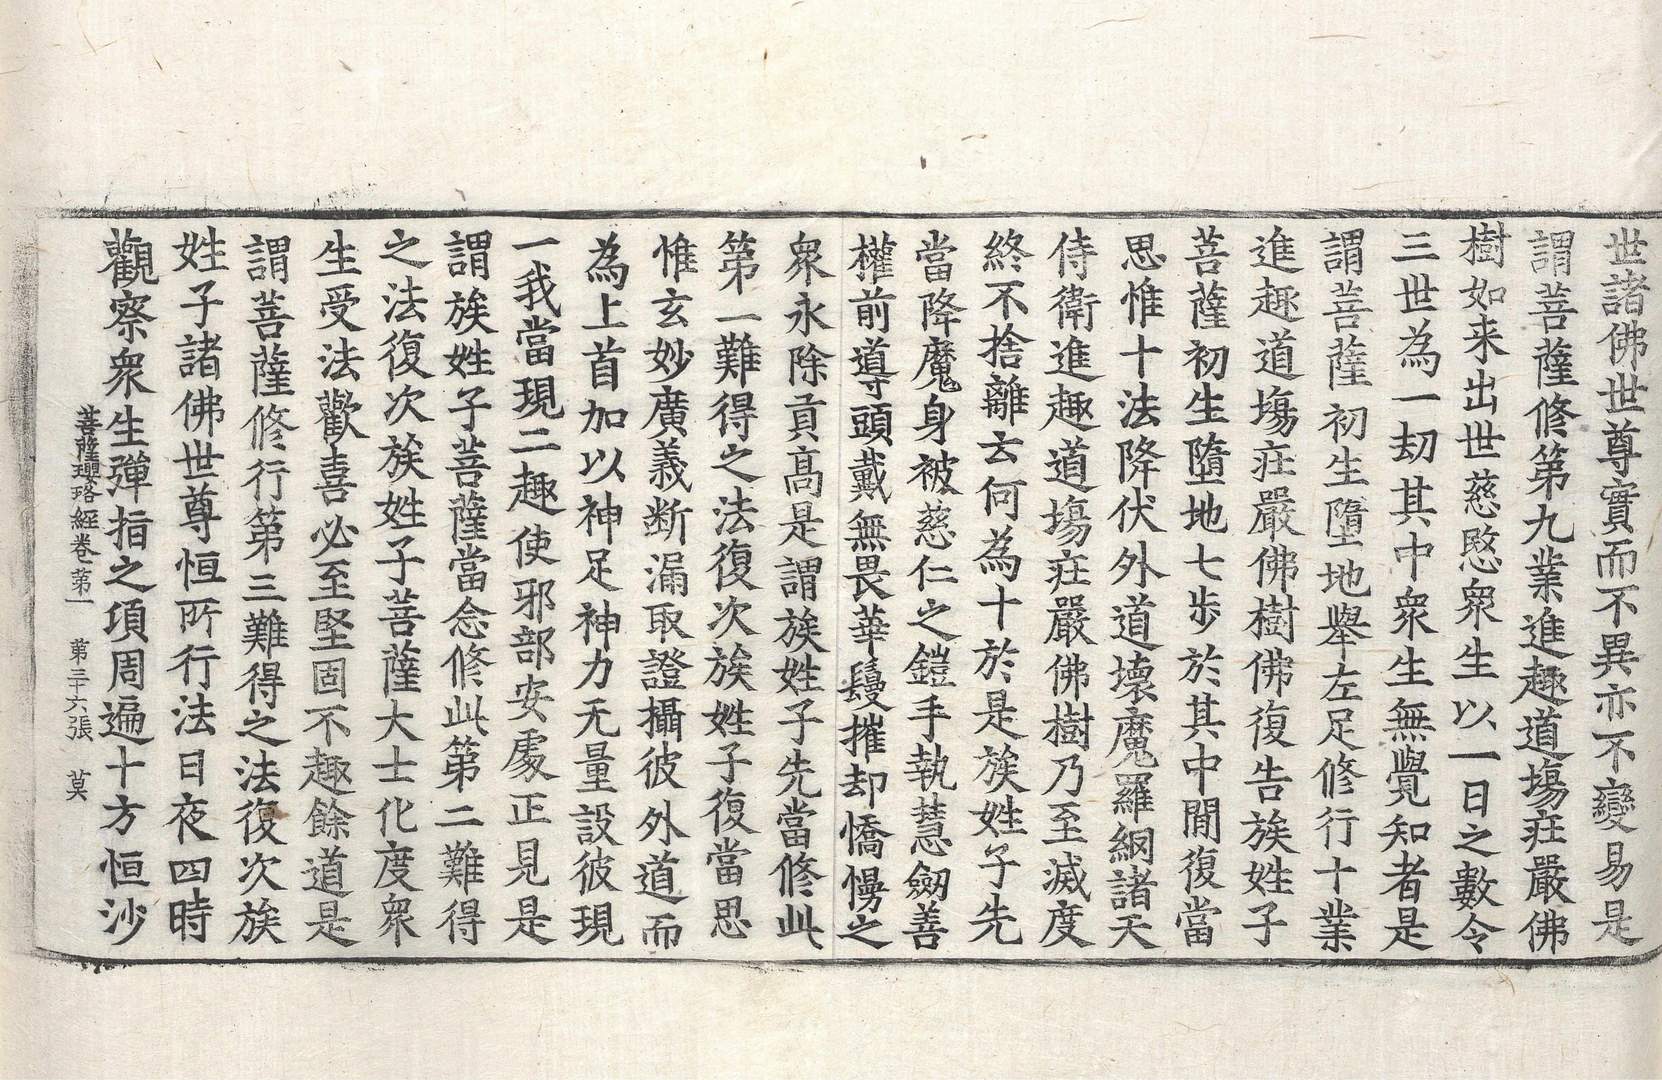 世諸佛世尊實而不異亦不變易是
謂菩薩修第九業進趣道場莊嚴佛
樹如来出世慈愍衆生以一日之數令
三世為一劫其中衆生無覺知者是
謂菩薩初生墮地舉左足修行十業
進趣道場莊嚴佛樹佛復告族姓子
菩薩初生墮地七步於其中間復當
思惟十法降伏外道壞魔羅網諸天
侍衛進趣道場莊嚴佛樹乃至滅度
終不捨離云何為十於是族姓子先
當降魔身被慈仁之鎧手執慧劒善
權前導頭戴無畏華鬘摧却憍慢之
衆永除貢高是謂族姓子先當修此
第一難得之法復次族姓子復當思
惟玄妙廣義斷漏取證攝彼外道而
為上首加以神足神力无量設彼現
一我當現二趣使邪部安處正見是
謂族姓子菩薩當念修此第二難得
之法復次族姓子菩薩大士化度衆
生受法歡喜必至堅固不趣餘道是
謂菩薩修行第三難得之法復次族
姓子諸佛世尊恒所行法日夜四時
觀察衆生彈指之項周遍十方恒沙
菩薩瓔珞經卷第一 第三十六張 莫